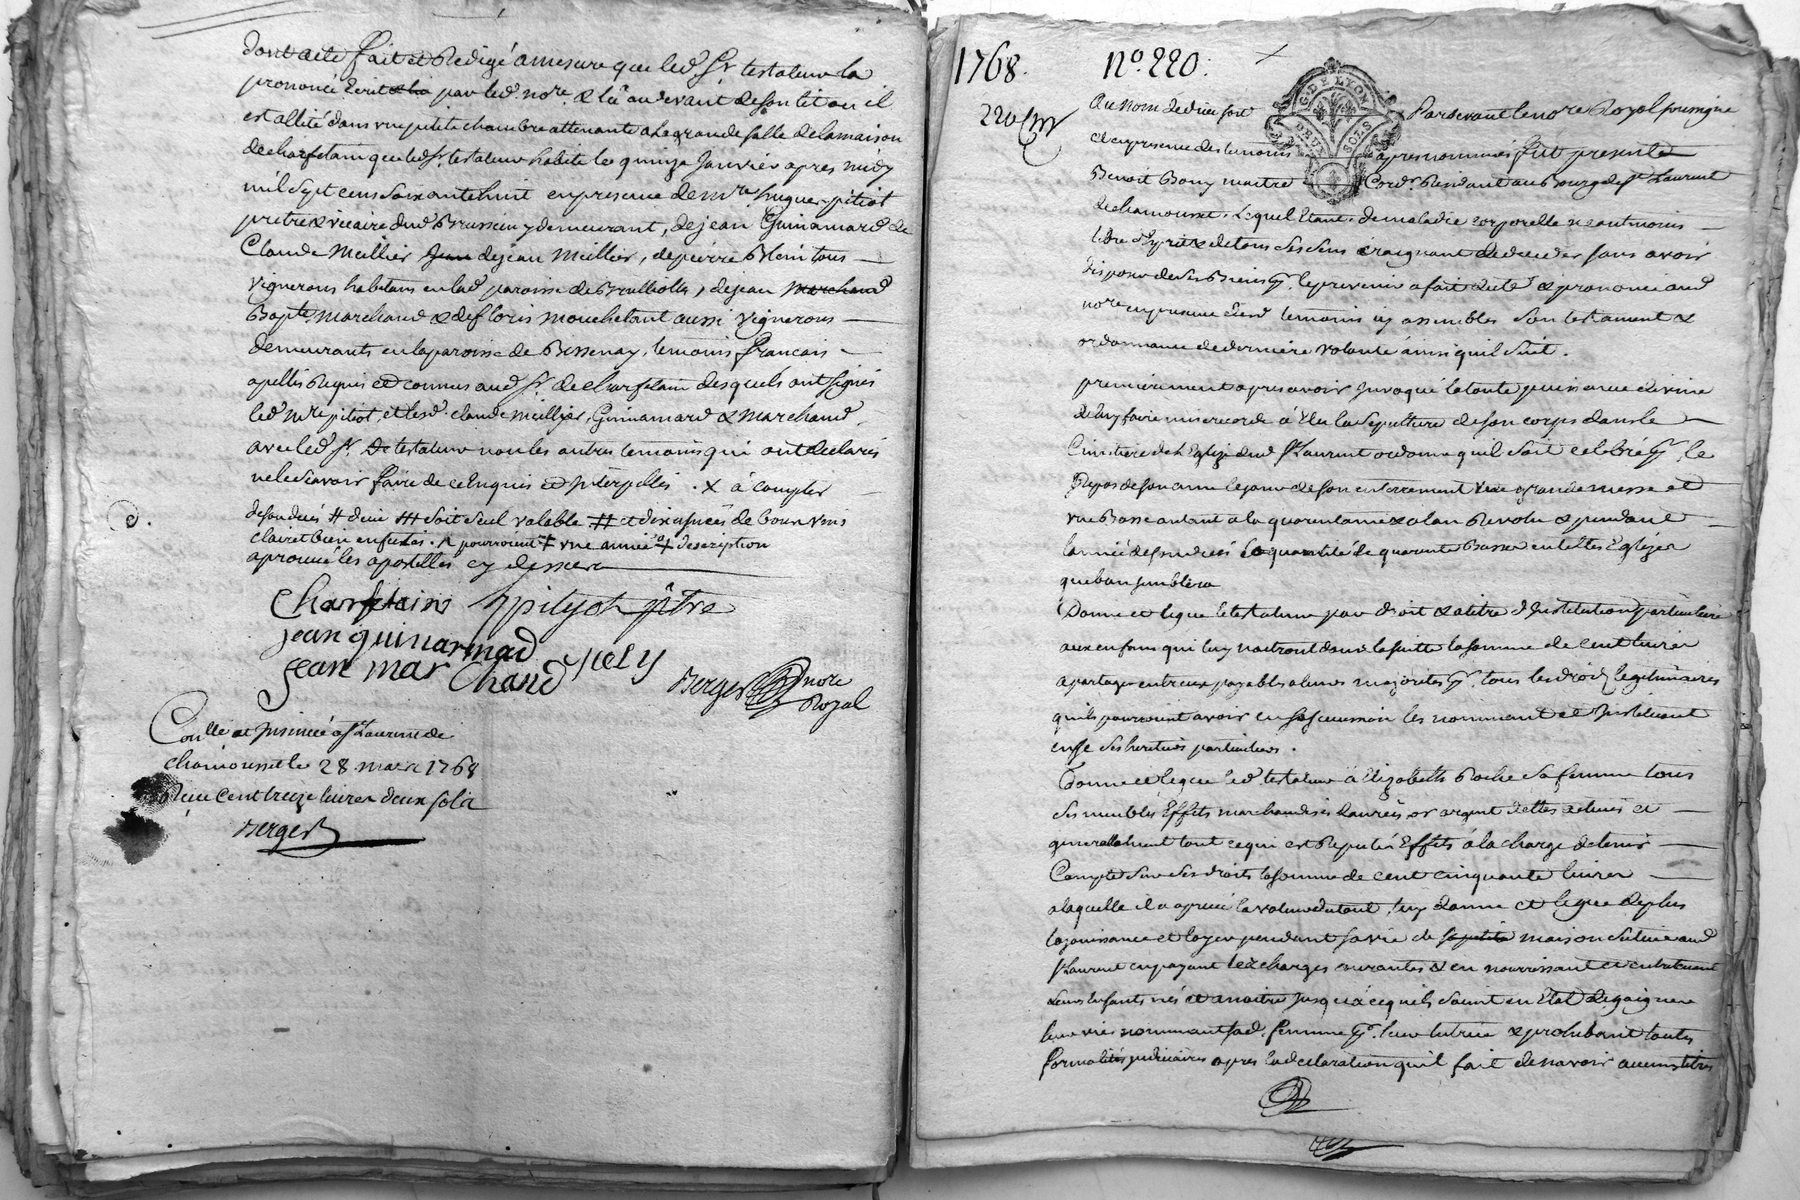 dont acte fait et Redigé amesure que led. Sr. testateur la
prononcé Ecrit par led. nore. & lû audevant de son lit ou il
est allité dans une petite chambre attenante a la grande salle de la maison
de charfetain que led. Sr. testateur habite le quinze Janvier apres midy
mil Sept cens Soixante huit en presence de mre. hugue pitiot
pretre & vicaire dud. Brussieu y demeurant, de jean Guinamard de
Claude Meillier de jean Meillier, de pierre Blein tous
vignerons habitans en lad. paroisse de Brulliolles, de jean marchand
Bapte. marchand & de floris mouchetant aussi vignerons
demeurants en la paroisse de Bessenay, temoins francois
apellés Requis et connus aud. Sr. de charfetain desquels ont signés
led. mre. pitiot, et lesd. claude meillier, Guinamard & marchand,
avec led. Sr. testateur non les autres temoins qui ont declarés
ne le scavoir faire de ce Enquis et Interpellés. x à compter
de son decés # deux ### soit seul valable. ## et dix asnées de bon vin
clairet bien enfutés. ^ pourroient + une année + description
aprouvé les apostilles cy dessus
Charfetain hpityot ptre
jean guinarmad
jean mar chand
Berger nore
Royal
Conllé et Insinué a St. Laurent de
chamousset le 28 mars 1768
Reçu cent treize livres deux sols
Berger
1768. No. 220.
220
G. DE LYON
DEUX SOLS
Au nom de dieu soit Pardevant le nore Royal soussigné
et en presence des temoins apres nommés fut present
Benoit Bony maitre Cordr. Residant au Bourg de St. Laurent
de chamousset. Lequel Etant de maladie corporelle neantmoins
libre d'esprit & de tous ses sens craignant de deceder sans avoir
disposé de ses Biens pr. le prevenir a fait dicté & prononcé aud.
nore en presence desd. temoins cy assemblés son testament &
ordonnance de derniere volonté ainsi quil suit.
premierement apres avoir Invoqué la toute puissance divine
de luy faire misericorde à Elu la sepulture de son corps dans le
Cimetiere de l'Eglize dud. St Laurent ordonne quil soit celebré pr. le
Repos de son ame le jour de son enterrement une grande messe et
une Basse autant a la quarantaine & a l'an Revolu & pendant
l'année de son decés la quantité de quarante Basses en telles Eglizes
que bon semblera
Donne et legue le testateur par droit & a titre d'Institution particuliere
aux enfans qui luy naitront dans la suitte la somme de cent livres
a partager entreux payables a leurs majorités pr. tous les droits legitimaires
quils pourroient avoir en sa succession les nommant et Instituant
en ce ses heritiers particuliers.
Donne et legue led. testateur à Elizabeth Roche sa femme tous
ses meubles Effets marchandises danrées or argent dettes actives et
generallement tout ce qui est Reputé Effets à la charge de tenir
Compte sur ses droits la somme de cent cinquante livres
a laquelle il a aprecié la valeur du tout, luy donne et legue de plus
la jouissance et loyer pendant sa vie de sa petite maison située aud.
St Laurent en payant les charges courantes & en nourrissant et entretenant
leurs Enfants nés et a naitre jusqua ce quils soient en Etat de gaigner
leur vie nommant sad. femme pr. leur tutrice & prohibant toutes
formalités judiciaires apres la declaration quil fait de n'avoir aucuns titres